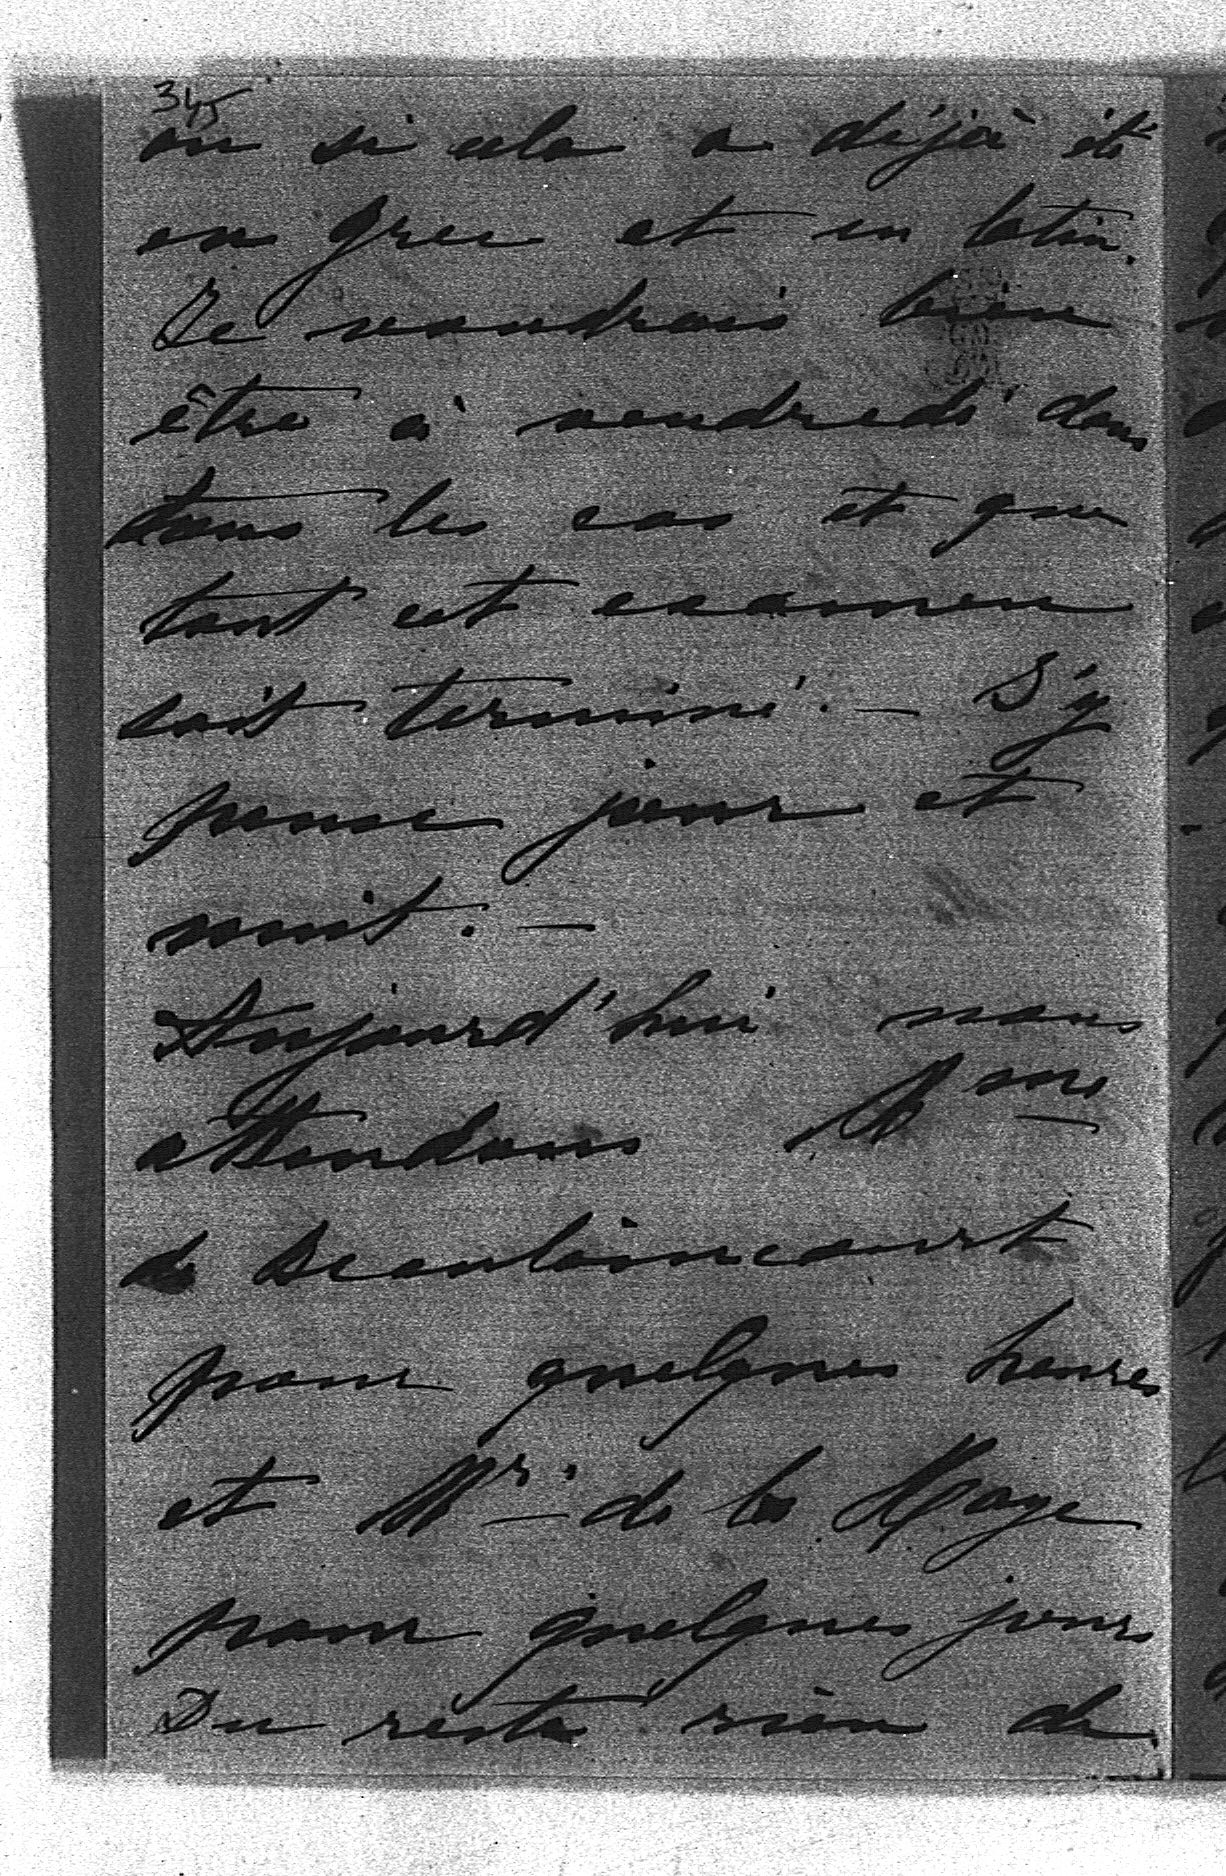 345
ou si cela a déjà été
en grec et en latin.
Je voudrais bien
être à vendredi dans
tous les cas et que
tout cet examen
soit terminé. — J'y
pense jour et
nuit. —
Aujourd'hui nous
attendons Mme
de Beaulaincourt
pour quelques heures
et Mr. de la Haye
pour quelques jours
Du reste rien de